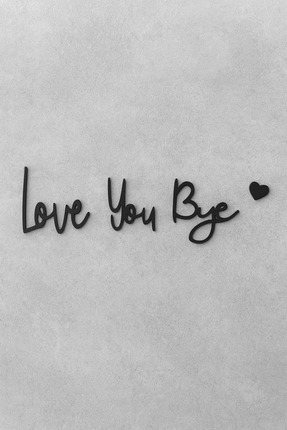 Love You Bye